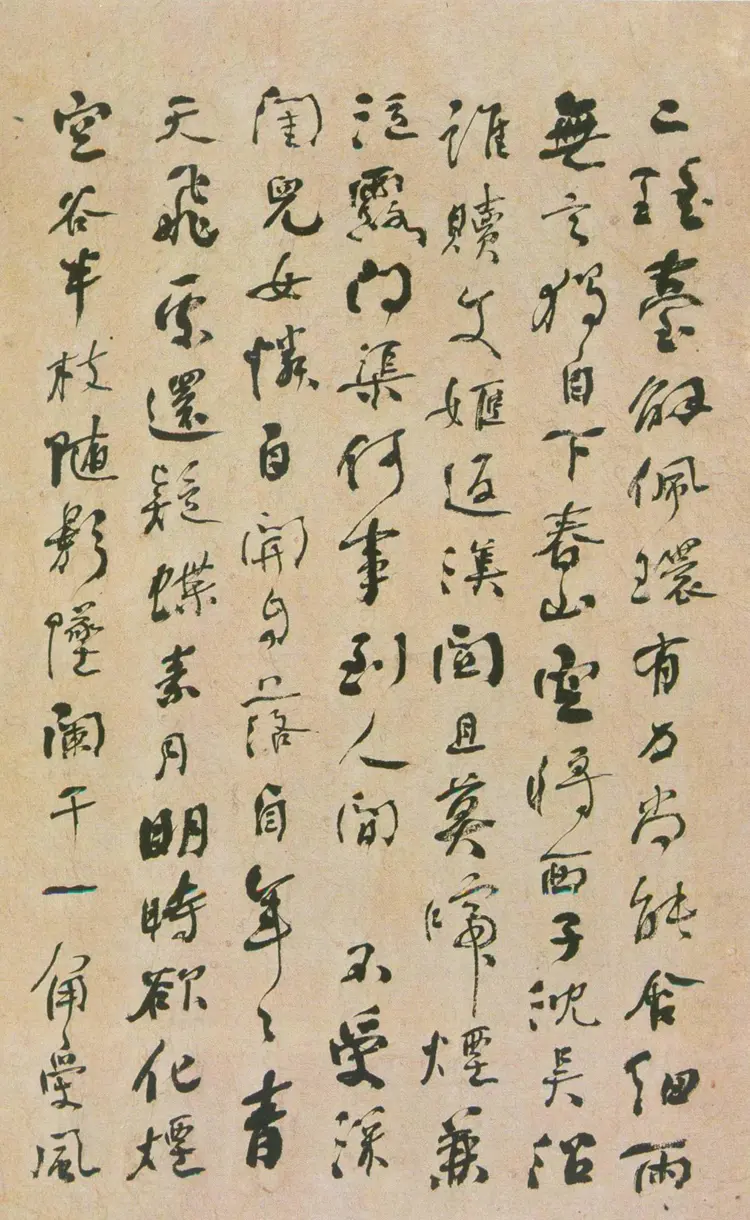 二瑤臺解佩環有力尚能含細雨
無言獨自下春山空將西子沈吳沼
誰贖文姬返漢關且莫啼煙兼
泣露問渠何事到人間 不受深
閨兒女憐自開自落自年〻青
天飛處還疑蝶素月明時欲化煙
空谷半枝随影墜闌干一角受風